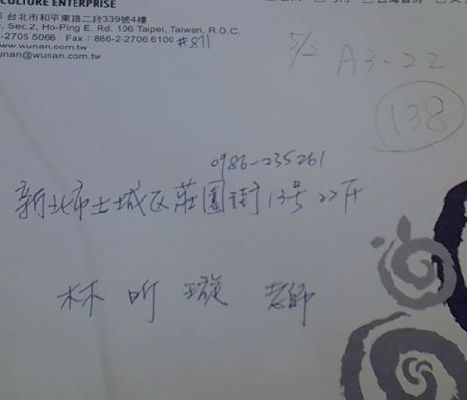 CULTURE ENTERPRISE
台北市和平東路二段339號4樓
Sec.2, Ho-Ping E. Rd. 106 Taipei, Taiwan, R.O.C.
-2705 5066 Fax : 886-2-2706 6100 #811
www.wunan.com.tw
wunan@wunan.com.tw
5/2 A3-22
138
0986-235261
新北市土城區莊園街13号22F
林昕璇 老師